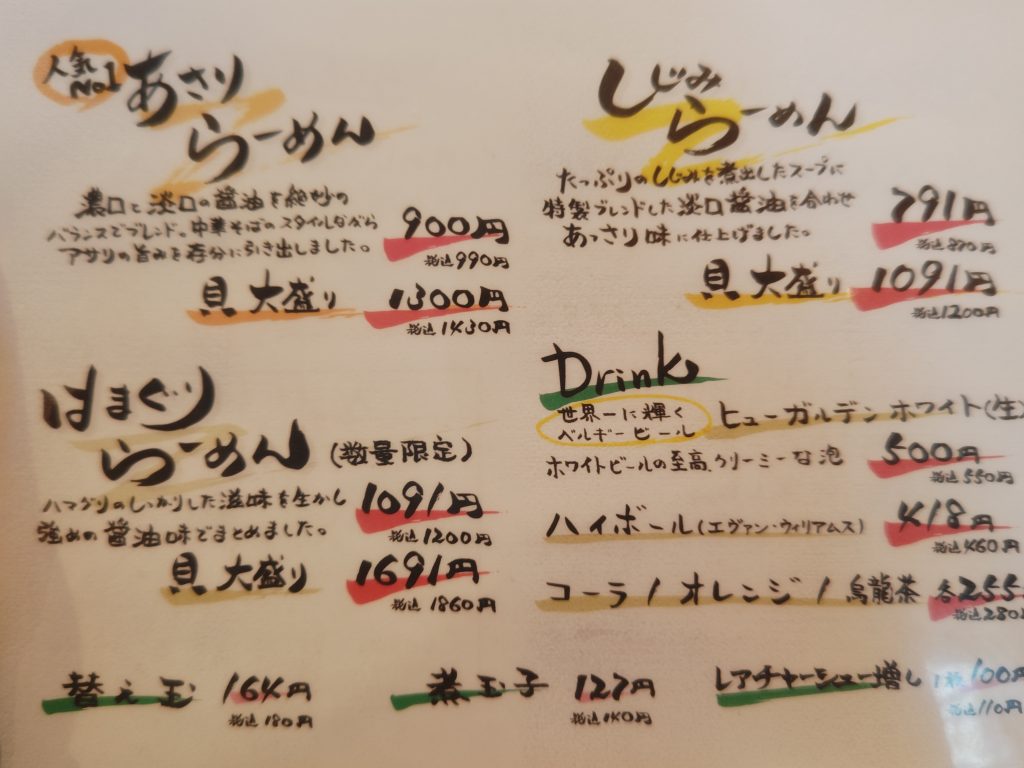 人気
No1
あさり
らーめん
濃口と淡口の醤油を絶妙の
バランスでブレンド。中華そばのスタイルながら
アサリの旨みを存分に引き出しました。
900円
税込990円
貝大盛り 1300円
税込1430円
しじみ
らーめん
たっぷりのしじみを煮出したスープに
特製ブレンドした淡口醤油を合わせ
あっさり味に仕上げました。
791円
税込870円
貝大盛り 1091円
税込1200円
はまぐり
らーめん(数量限定)
ハマグリのしっかりした滋味を生かし
強めの醤油味でまとめました。
1091円
税込1200円
貝大盛り 1691円
税込1860円
Drink
世界一に輝く
ベルギービール
ヒューガルデンホワイト(生)
ホワイトビールの至高、クリーミーな泡
500円
税込550円
ハイボール(エヴァン・ウィリアムス) 418円
税込460円
コーラ/オレンジ/烏龍茶 各255
税込280
替え玉 164円
税込180円
煮玉子 127円
税込140円
レアチャーシュー増し 1枚100円
税込110円